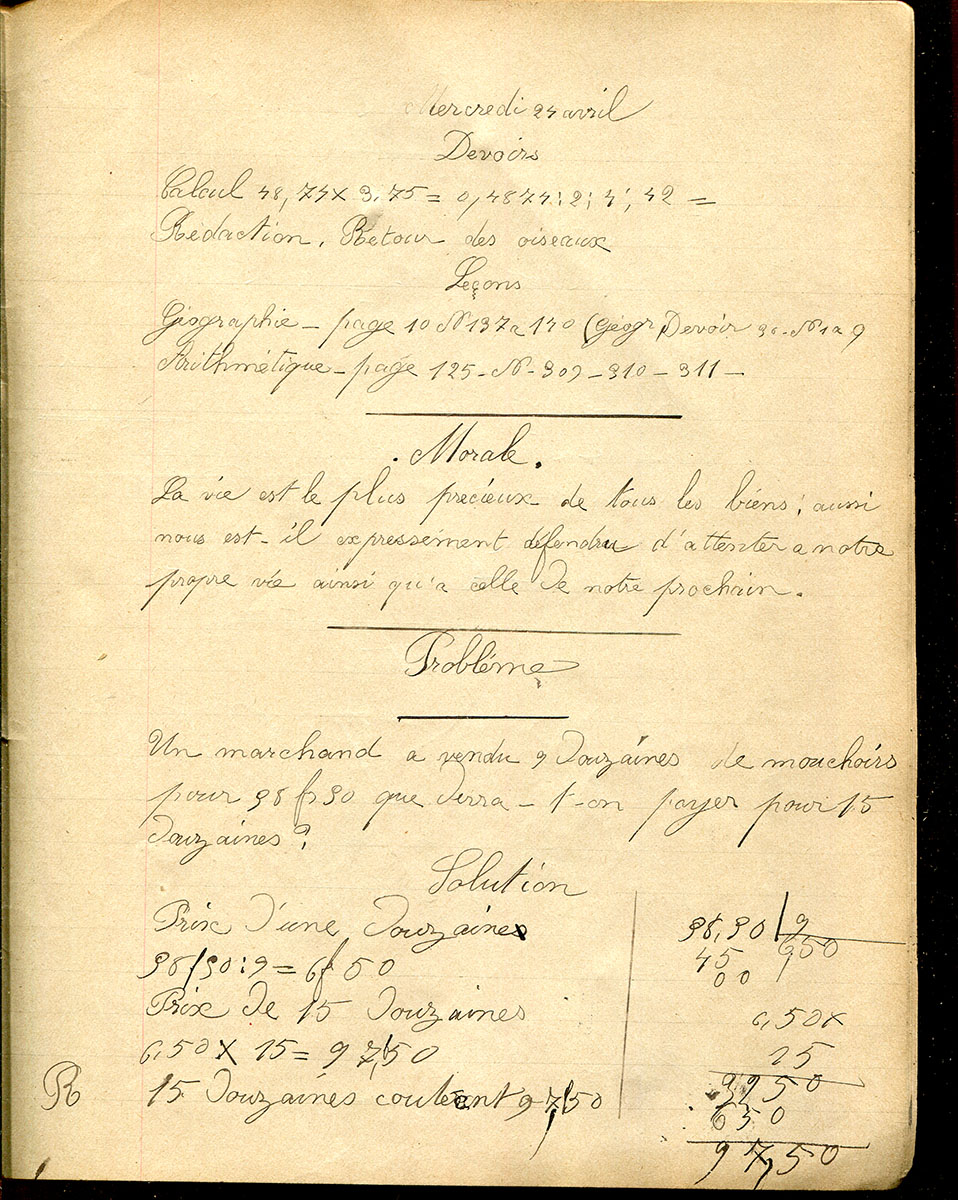 Mercredi 24 avril
Devoirs
Calcul 48,74 x 3,75 = 0,4874 : 2 ; 4 ; 42 =
Rédaction. Retour des oiseaux
Leçons
Géographie – page 10 N 137 a 140 (Géogr) Devoir N 1 a 9
Arithmétique – page 125 - N - 309 – 310 – 311 –
. Morale .
La vie est le plus precieux de tous les biens ; aussi
nous est-il expressément défendu d'attenter a notre
propre vie ainsi qu'a celle de notre prochain.
Problème
Un marchand a vendu 9 douzaines de mouchoirs
pour 58f50 que devra-t-on payer pour 15
douzaines ?
Solution
Prix d'une douzaine
58f50 : 9 = 6f50
Prix de 15 douzaines
6,50 x 15 = 97f50
R 15 douzaines coutent 97f50
58,50 | 9
45 6,50
00
6,50 x
15
3250
650
97,50